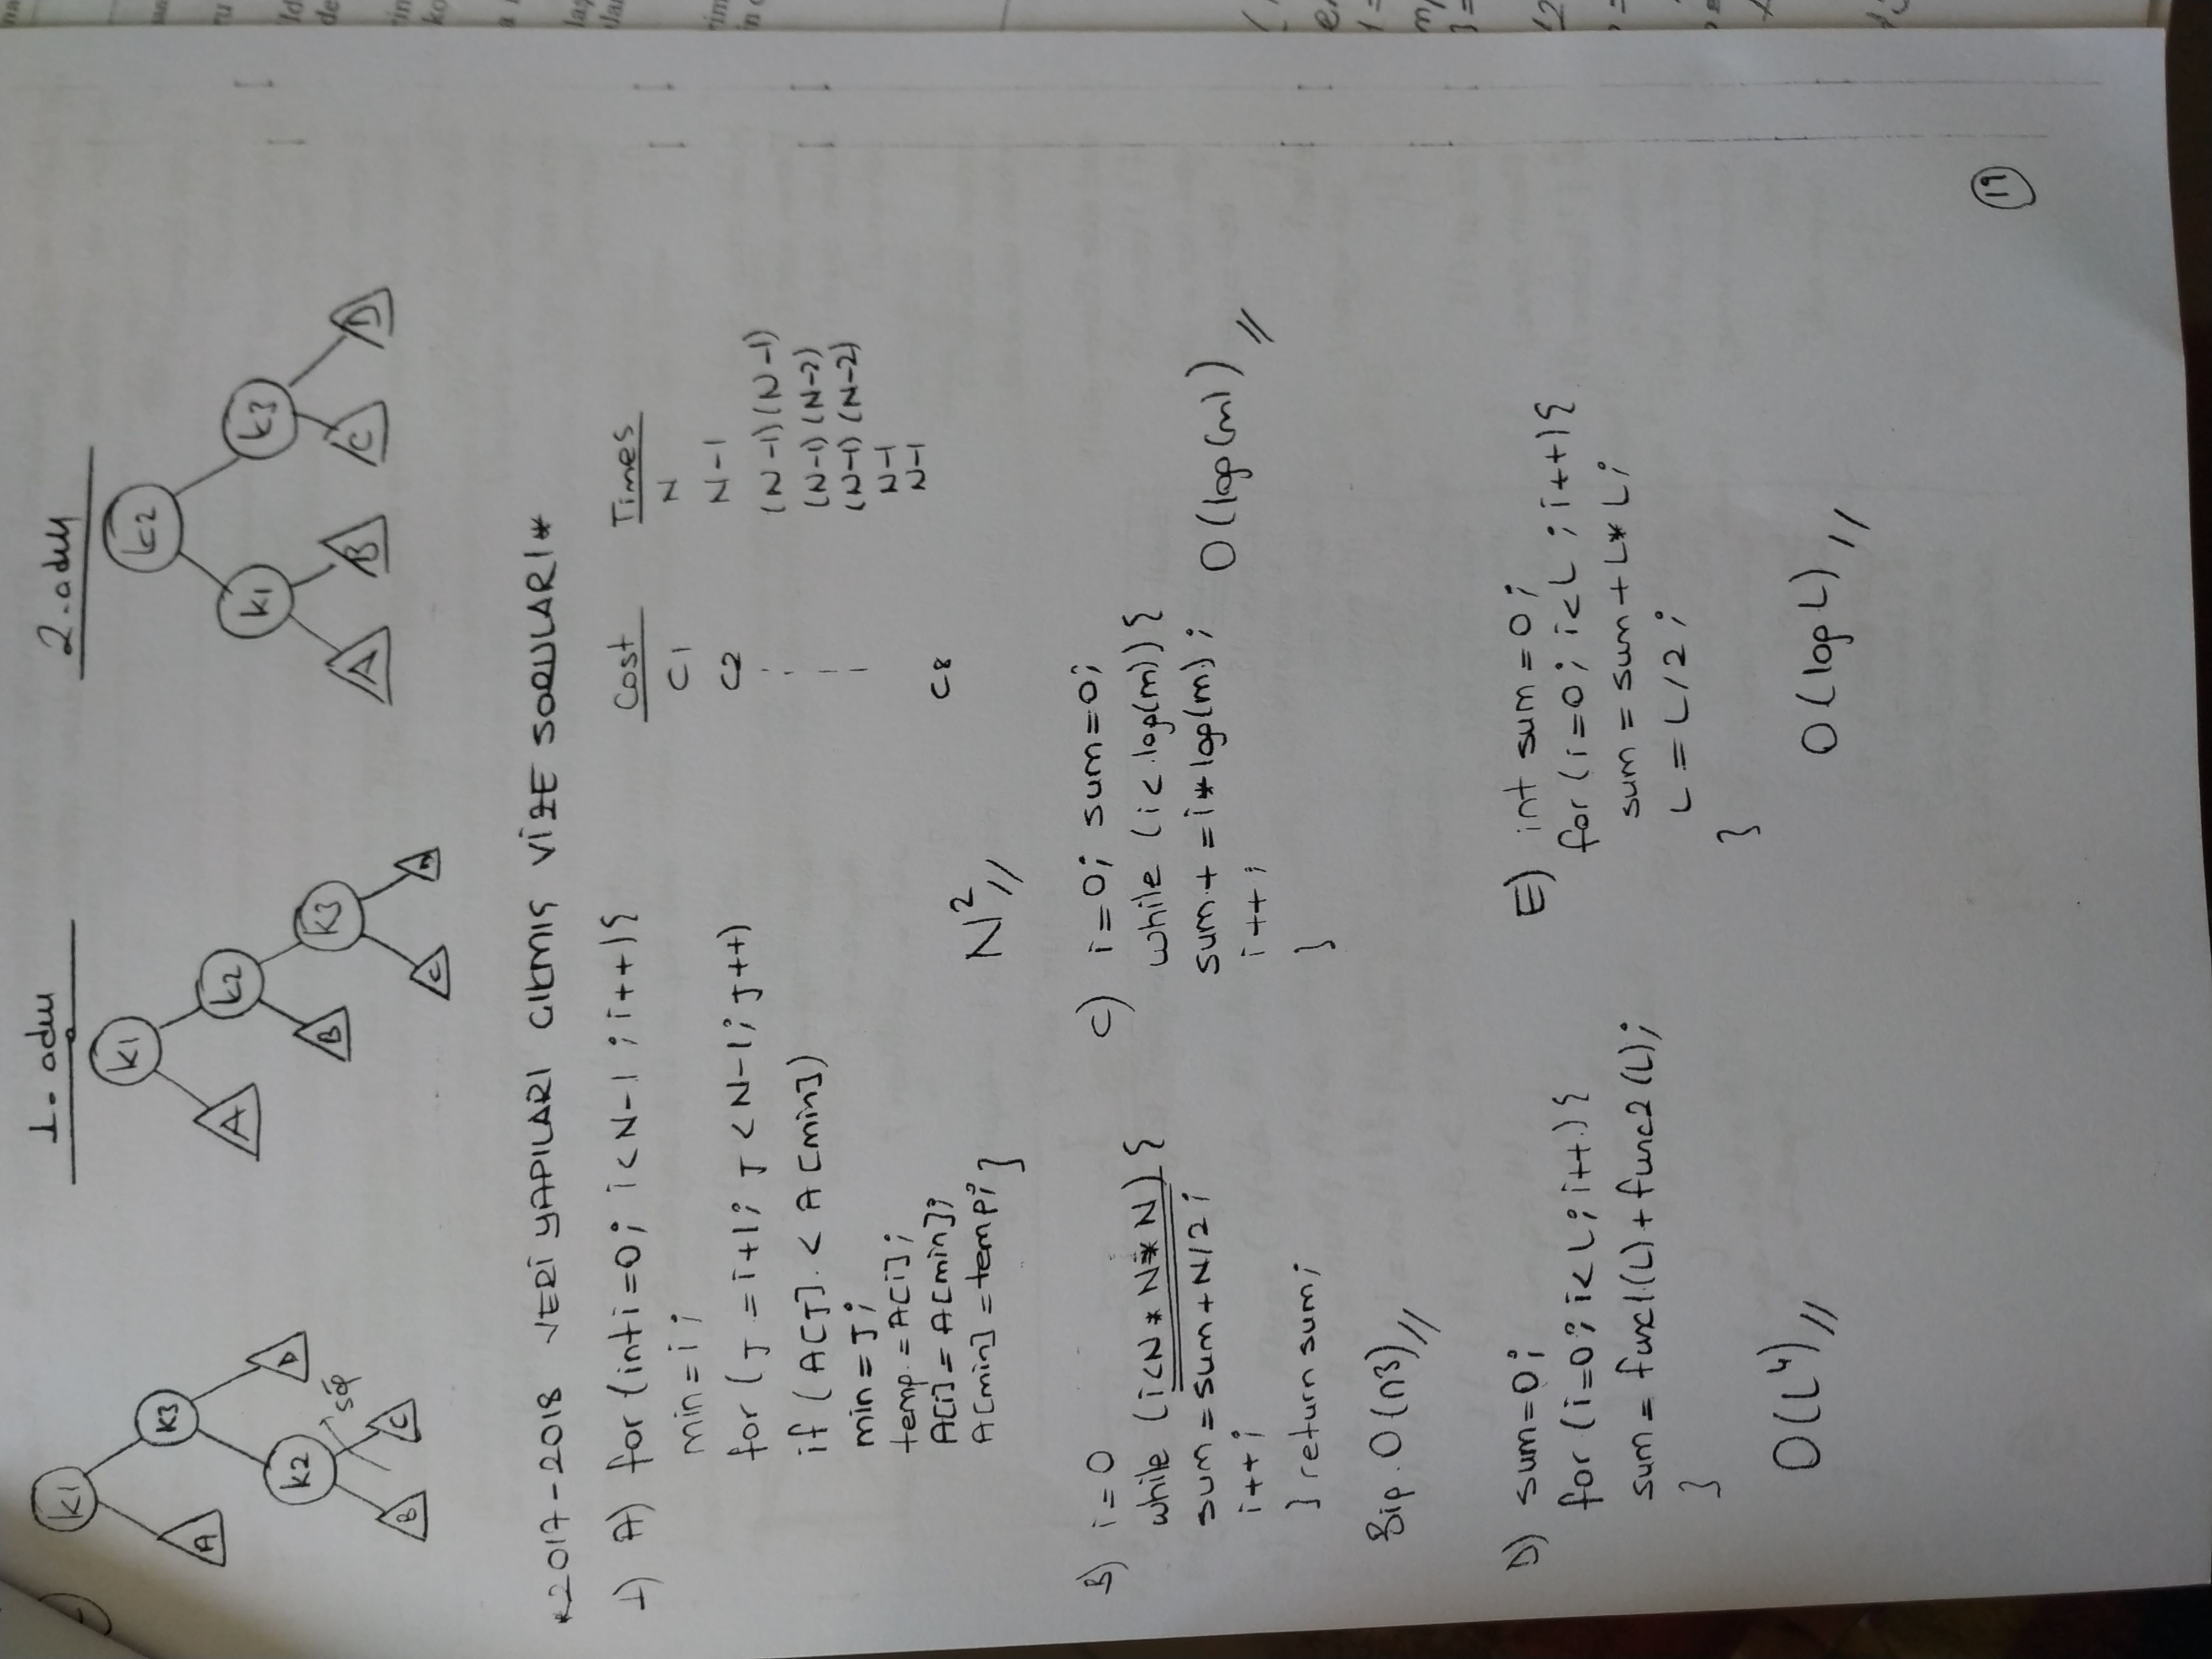 1. adım
2. adım
k1
A
k3
k2
D
B
C
sağ
k1
A
k2
B
k3
C
D
k2
k1
k3
A
B
C
D
*2017-2018 VERİ YAPILARI ÇIKMIŞ VİZE SORULARI*
1) A) for (int i=0; i<N-1; i++){
min = i;
for (J = i+1; J<N-1; J++)
if (A[J] < A[min])
min = J;
temp = A[i];
A[i] = A[min];
A[min] = temp; }
N²//
Cost
Times
C1
N
C2
N-1
(N-1)(N-1)
(N-1)(N-2)
(N-1)(N-2)
N-1
C8
N-1
B) i=0
while (i<N*N*N){
sum = sum+N/2;
i++;
} return sum;
O(n³)//
C) i=0; sum=0;
while (i<log(m)){
sum+ = i*log(m);
i++;
}
O(log(m))//
D) sum=0;
for (i=0; i<L; i++){
sum = func1(L) + func2(L);
}
O(L⁴)//
E) int sum=0;
for (i=0; i<L; i++){
sum = sum + L*L;
L = L/2;
}
O(log L)//
19